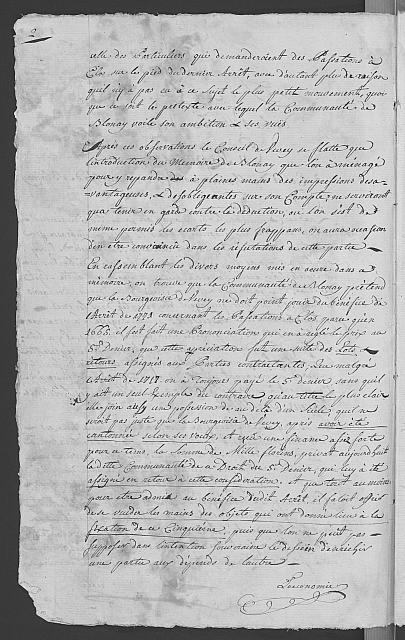 2
celle des Particuliers qui demanderoient des Passations à
Clos sur le pied du dernier Arrêt, avec d'autant plus de raison
qu'il n'y a pas eu à ce sujet le plus petit mouvement, quoi
que ce soit le prétexte avec lequel la Communauté de
Blonay voile son ambition & ses vuës.
Après ces observations le Conseil de Vevey se flatte que
l'introduction du Memoire de Blonay que l'on a menagé
pour y repandre à pleines mains des impressions desa-
-vantageuses, & desobligeantes sur son Compte, ne serviront
qu'à tenir en garde contre la deduction, où l'on s'est de
même permis les écarts les plus frappans, on aura occasion
d'en être convaincu dans les refutations de cette partie.
En rassemblant les divers moyens mis en oeuvre dans ce
memoire, on trouve que la Communauté de Blonay prétend
que la Bourgeoisie de Vevey ne doit point jouir du bénéfice de
l'Arrêt de 1793 concernant les Passations à Clos parce qu'en
1685. il fut fait une Prononciation qui en a reglé le prix au
5e Denier, que cette appréciation fut une suite des Lots &
retours assignés aux Parties contractantes. Que malgré
l'Arrêt de 1717. on a toujours payé le 5e denier, sans qu'il
y ait un seul exemple du contraire qu'au titre le plus clair
elle joint aussy une possession de au delà d'un Siécle, qu'il ne
seroit pas juste que la Bourgeoisie de Vevey, après avoir été
cantonnée selon ses voeux, et reçu une finance assés forte
pour ce tems, la Somme de Mille florins, privat aujourd'huy
la dite Communauté de ce Droit du 5e Denier, qui luy a été
assigné en retour à cette consideration. et que tout au moins
pour être admis au bénéfice dudit Arrêt, il faloit offrir
de se vuider les mains des objets qui ont donné lieu à la
fixation de ce Cinquiéme, puis que l'on ne peut pas
supposer dans l'intention souveraine le dessein d'enrichir
une partie aux dépends de l'autre.
L'économie